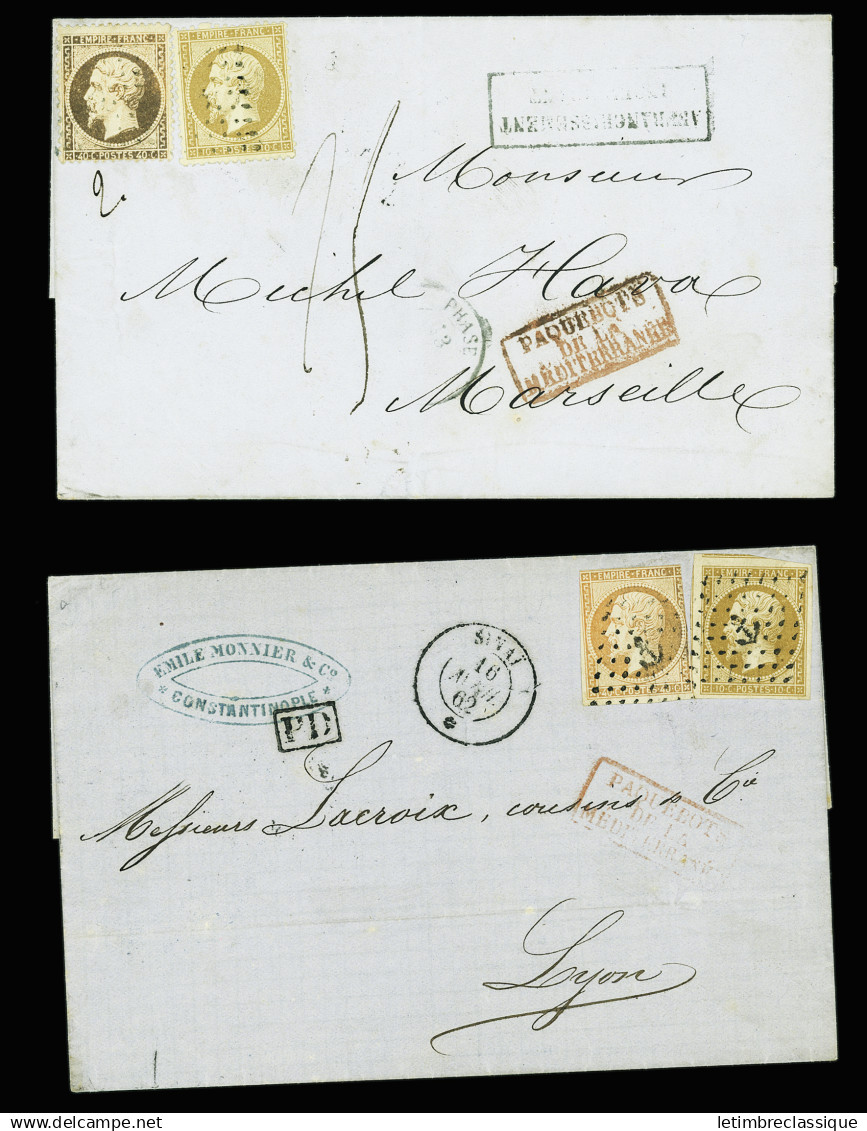 EMPIRE·FRANC EMPIRE·FRANC
40·C·POSTES·40·C 10·C·POSTES·10·C
AFFRANCHISSEMENT
2
Monsieur
Michel
PHASE
PAQUEBOTS
DE LA
MÉDITERRANÉE
Marseille
EMPIRE·FRANC EMPIRE·FRANC
10·C·POSTES·10·C
EMILE MONNIER & Co
* CONSTANTINOPLE *
PD
SINAÏ
16
62
Messieurs Lacroix, cousins & Cie
PAQUEBOTS
DE LA
MÉDITERRANÉE
Lyon
delcampe.net
letimbreclassique